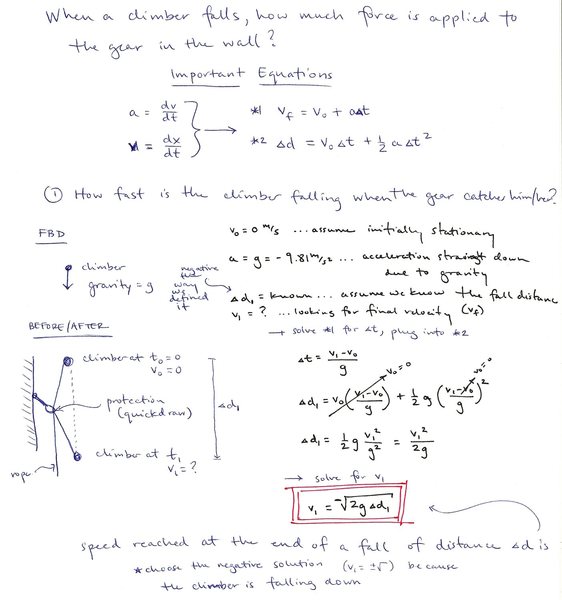 When a climber falls, how much force is applied to
the gear in the wall?
Important Equations
a = dv/dt
v = dx/dt
*1 v_f = v_0 + aΔt
*2 Δd = v_0 Δt + 1/2 a Δt²
① How fast is the climber falling when the gear catches him/her?
FBD
climber
gravity = g
negative
way
we
defined
it
v_0 = 0 m/s ... assume initially stationary
a = g = -9.81 m/s² ... acceleration straight down
due to gravity
Δd_1 = known ... assume we know the fall distance
v_1 = ? ... looking for final velocity (v_f)
→ solve *1 for Δt, plug into *2
BEFORE/AFTER
climber at t_0 = 0
v_0 = 0
protection
(quickdraw)
Δd_1
climber at t_1
v_1 = ?
rope
Δt = (v_1 - v_0)/g
Δd_1 = v_0 ((v_1 - v_0)/g) + 1/2 g ((v_1 - v_0)/g)²
v_0 = 0
v_0 = 0
Δd_1 = 1/2 g v_1²/g² = v_1²/2g
→ solve for v_1
v_1 = -√(2gΔd_1)
speed reached at the end of a fall of distance Δd is
* choose the negative solution (v_1 = ±√) because
the climber is falling down